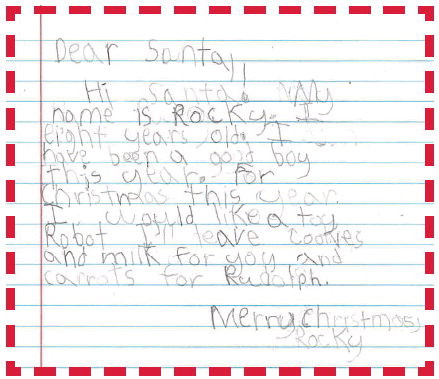 Dear Santa,
Hi Santa. My
name is Rocky. I
eight years old. I
have been a good boy
this year. For
Christmas this year
I would like a toy
Robot I'll leave cookies
and milk for you and
carrots for Rudolph.
Merry Christmas,
Rocky